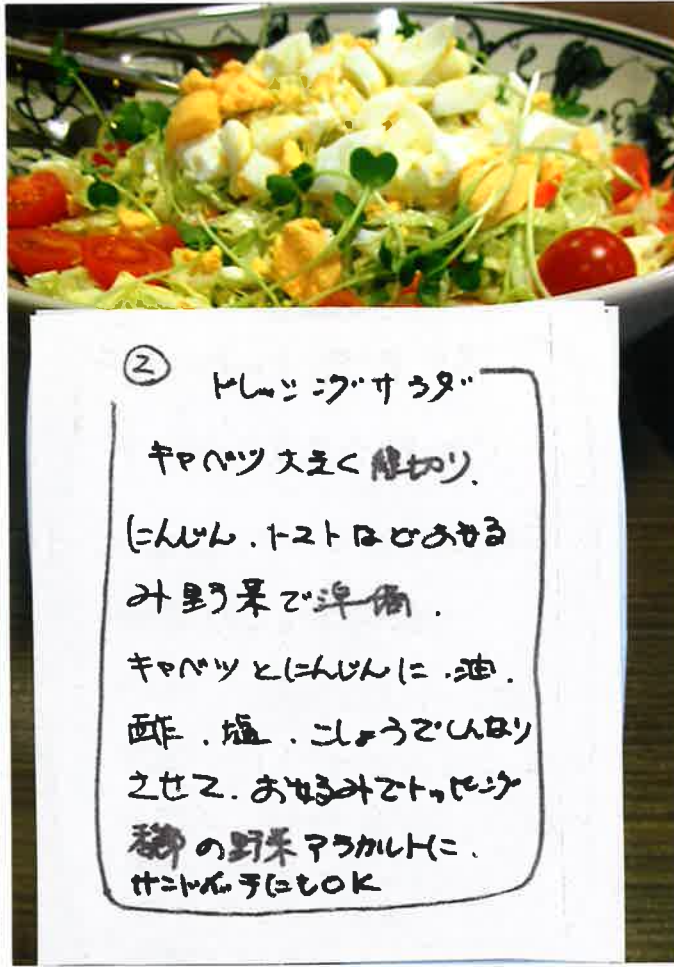 ②
ドレッシングサラダ
キャベツ大きく切り、
にんじん、トマトなどおせる
み野菜で準備。
キャベツとにんじんに、油、
酢、塩、こしょうでしんなり
させて、おせるみでトッピング
の野菜アラカルトに、
サンドイッチにもOK